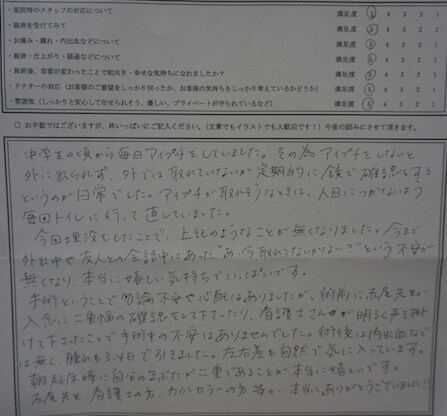 ・来院時のスタッフの対応について 満足度 5 4 3 2 1
・施術を受けてみて 満足度 5 4 3 2 1
・お痛み・腫れ・内出血などについて 満足度 5 4 3 2 1
・施術・仕上がり・経過などについて 満足度 5 4 3 2 1
・施術後、容姿が変わったことで前向き・幸せな気持ちになれましたか? 満足度 5 4 3 2 1
・ドクターの対応（お客様のご要望をしっかり伺ったか、お客様の気持ちをしっかり考えているかどうか） 満足度 5 4 3 2 1
・雰囲気（しっかりと安心して任せられそう、優しい、プライベートが守られているなど） 満足度 5 4 3 2 1
○ お手数ではございますが、枠いっぱいにご記入ください。（文章でもイラストでも大歓迎です！）今後の励みにさせて頂きます。
中学生の頃から毎日アイプチをしていました。その為アイプチをしないと
外に出られず、外では取れていないか定期的に鏡で確認する
というのが日常でした。アイプチが取れそうなときは、人目につかないよう
毎回トイレに行って直していました。
今回埋没をしたことで、上記のようなことが無くなりました。今まで
外出中や友人との会話中にあった"あ、今取れてないかな…?"という不安が
無くなり、本当に嬉しい気持ちでいっぱいです。
手術ということで勿論不安や心配はありましたが、術前に赤尾先生が
入念に二重幅の確認をして下さったり、看護士さんが明るく声を掛
けて下さったことで手術中の不安はありませんでした。術後は内出血など
は無く、腫れも3.4日で引きました。左右差も自然で気に入っています。
朝起床時に自分のまぶたが二重であることが本当に嬉しいです。
赤尾先生、看護士の方、カウンセラーの方等々…本当にありがとうございました!!